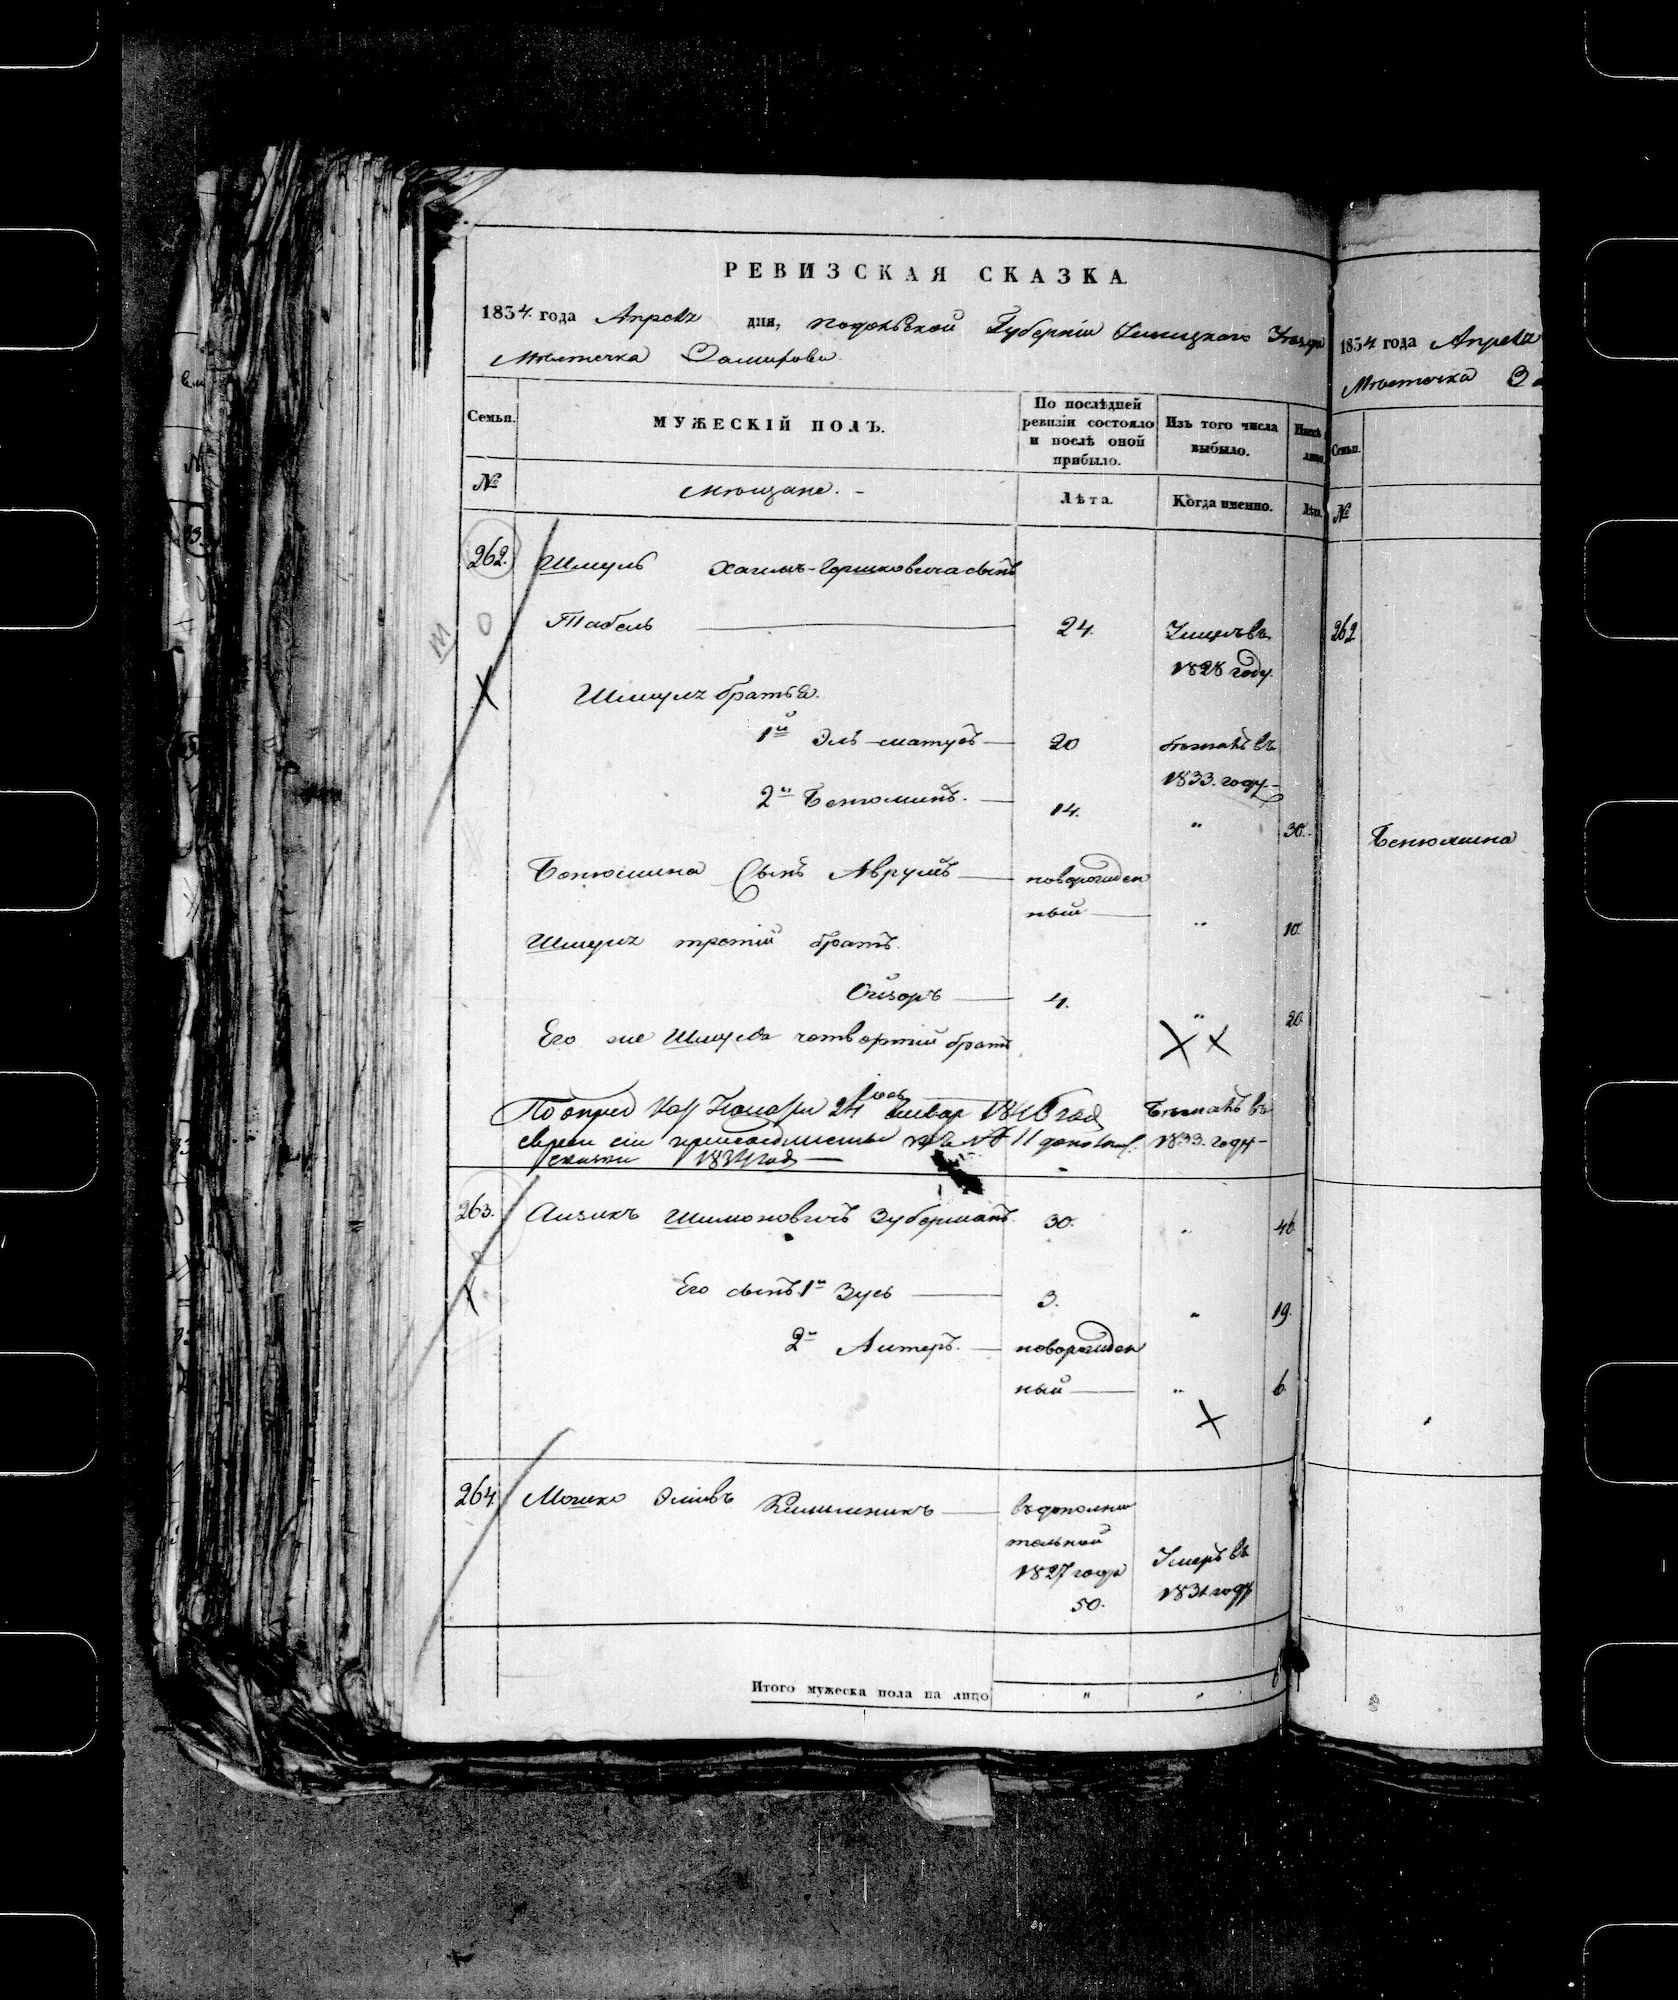 РЕВИЗСКАЯ СКАЗКА
1834 года Апреля дня, Подольской Губерніи Уѣзда
Мѣстечка
Семьи. МУЖЕСКІЙ ПОЛЪ. По послѣдней ревизіи состояло и послѣ оной прибыло. Изъ того числа выбыло. Нынѣ лицо
№ Мѣщане. Лѣта. Когда именно. Лѣта.
262. Шмуль Хаимъ-Гершковича сынъ
Табель 24. Умеръ въ
1828 году.
Шмуля братья.
1й Эль-матусъ 20 бѣжалъ въ
1833. году
2й Бенюминъ. 14. " 30.
Бенюмина Сынъ Аврумъ новорожден
ный " 10.
Шмуля третій братъ.
Ойзоръ 4. " 20.
Его же Шмуля четвертій братъ
Іосъ
По опред 24 Январ года Бѣжалъ въ
евреи сіи къ № 11 1833. году
сказки 1834 года
263. Аизикъ Шимоновичъ Зуберманъ. 30. " 46.
Его сынъ 1й Зусь 3. " 19.
2й Алтеръ. новорожден
ный " 6.
264 Мошко
въ дополни
тельной
1827 года Умеръ въ
50. 1831 году
Итого мужеска пола на лицо " "
1834 года Апреля
Мѣстечка
Семьи.
№
262
Бенюмина